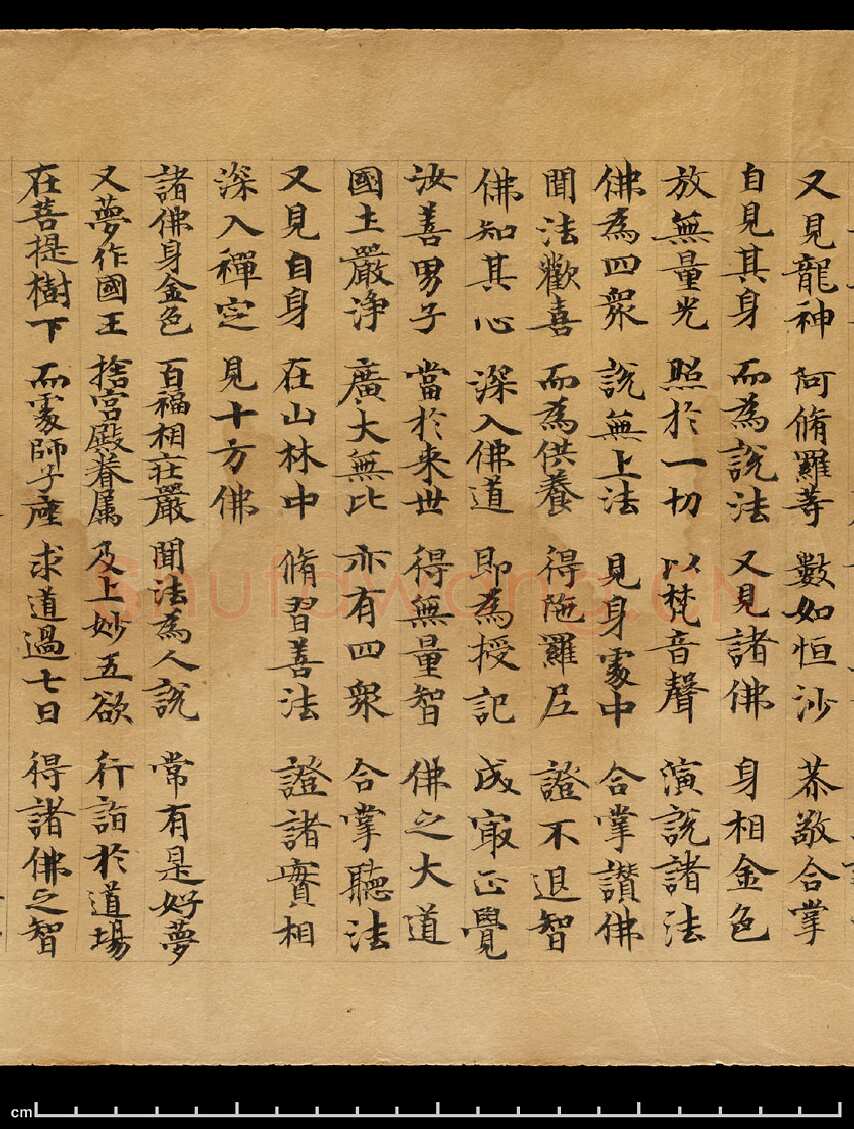 又見龍神 阿脩羅等 數如恒沙 恭敬合掌
自見其身 而為說法 又見諸佛 身相金色
放無量光 照於一切 以梵音聲 演說諸法
佛為四衆 說無上法 見身處中 合掌讃佛
聞法歡喜 而為供養 得陁羅尼 證不退智
佛知其心 深入佛道 即為授記 成寂正覺
汝善男子 當於来世 得無量智 佛之大道
國土嚴淨 廣大無比 亦有四衆 合掌聽法
又見自身 在山林中 脩習善法 證諸實相
深入禪定 見十方佛
諸佛身金色 百福相莊嚴 聞法為人說 常有是好夢
又夢作國王 捨宮殿眷属 及上妙五欲 行詣於道場
在菩提樹下 而處師子座 求道過七日 得諸佛之智
shufawang.CN
cm